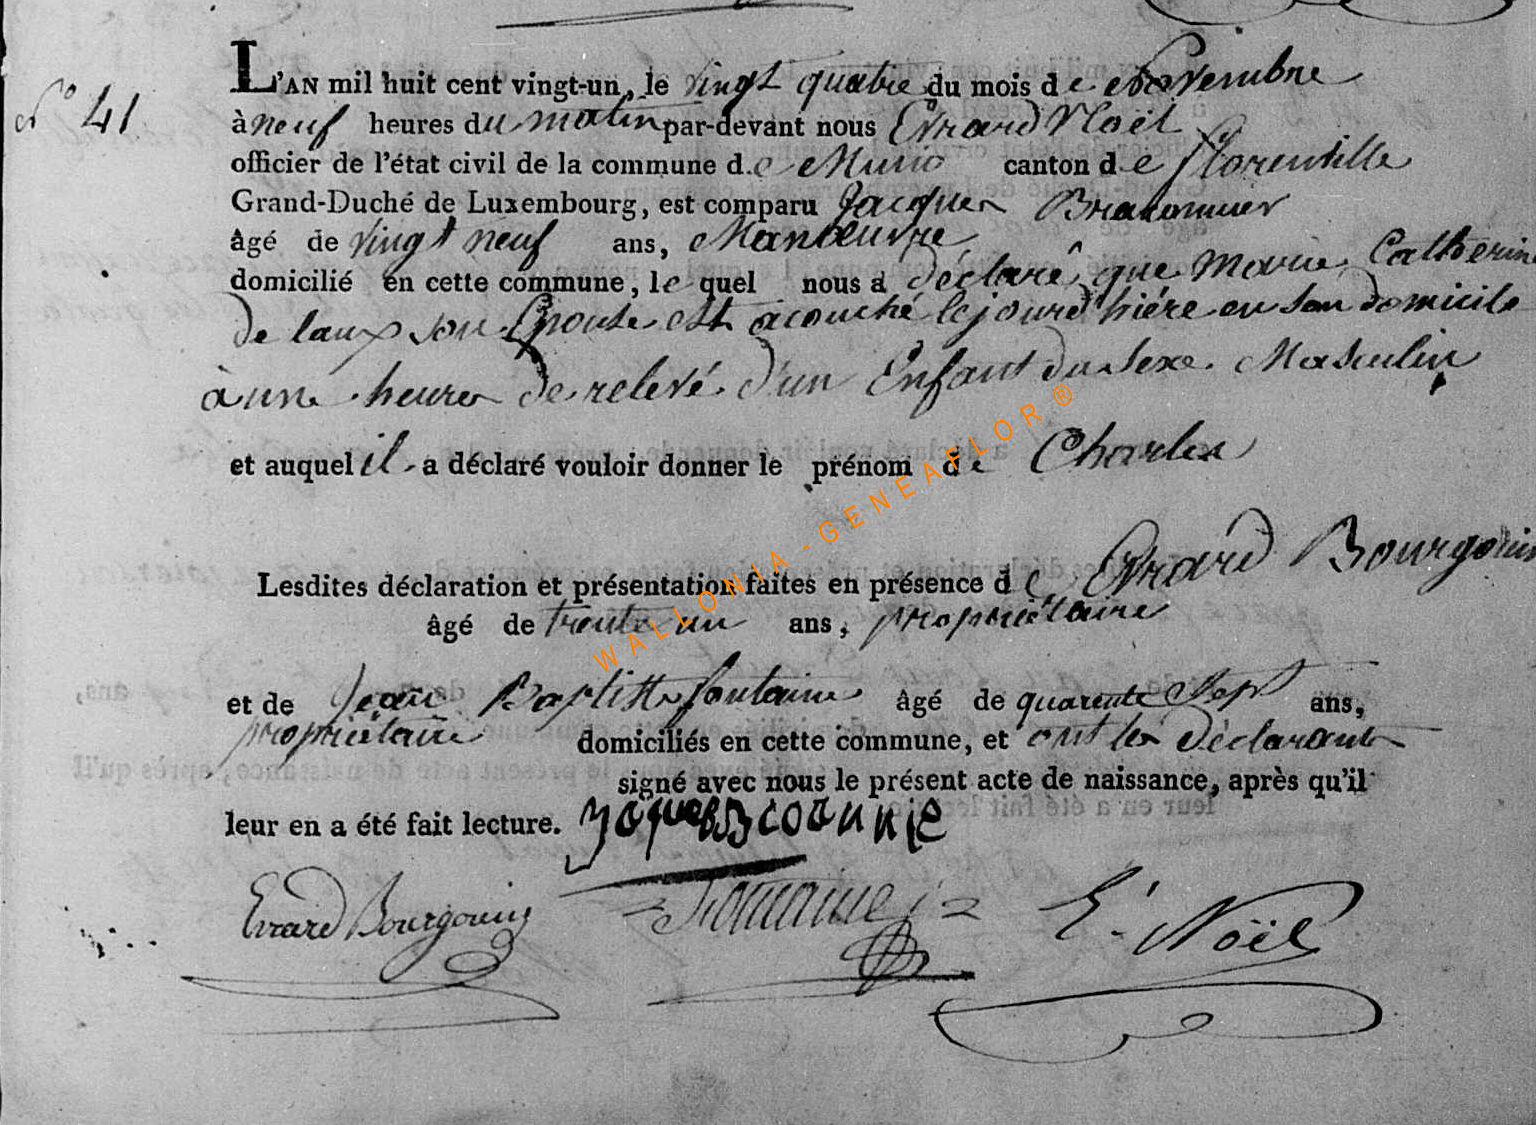 N° 41
L'AN mil huit cent vingt-un, le vingt quatre du mois de Novembre
à neuf heures du matin par-devant nous Evrard Noël
officier de l'état civil de la commune de Muno canton de florenville
Grand-Duché de Luxembourg, est comparu Jacques
âgé de vingt neuf ans, Manœuvre
domicilié en cette commune, lequel nous a déclaré que Marie Catherine
De laux son Epouse est acouché le jourd'hiére en son domicile
à une heure de relevé d'un Enfant du sexe Masculin
et auquel il a déclaré vouloir donner le prénom de Charles
Lesdites déclaration et présentation faites en présence de Evrard Bourgouin
âgé de trente un ans, propriétaire
et de Jean Baptiste fontaine âgé de quarente Sept ans,
propriétaire domiciliés en cette commune, et ont les déclarants
signé avec nous le présent acte de naissance, après qu'il
leur en a été fait lecture.
Evrard Bourgouin E. Noël
WALLONIA-GENEAFLOR®